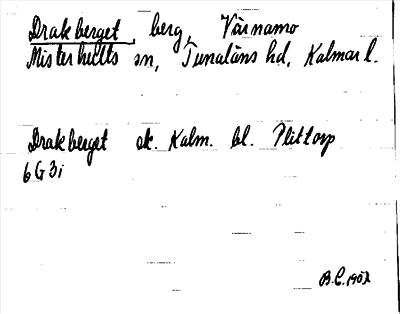 Drakberget, berg, Värnamo
Misterhults sn, Tunaläns hd, Kalmar l.
Drakberget ek. Kalm. bl. Plittorp
6G3i
B.C. 1902